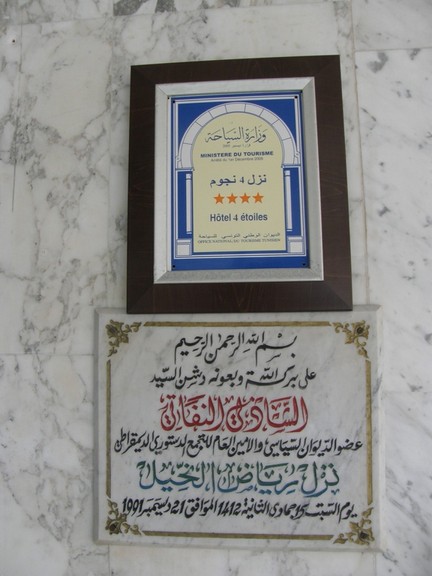 وزارة السياحة
MINISTERE DU TOURISME
Arrêté du 1er Décembre 2005
نزل 4 نجوم
Hôtel 4 étoiles
الديوان الوطني التونسي للسياحة
OFFICE NATIONAL DU TOURISME TUNISIEN
بسم الله الرحمن الرحيم
على بركة الله وبعونه دشن السيد
الشاذلي النفاتي
عضو الديوان السياسي والامين العام للتجمع الدستوري الديمقراطي
نزل رياض النخيل
يوم السبت 15 جمادى الثانية 1412 الموافق 21 ديسمبر 1991